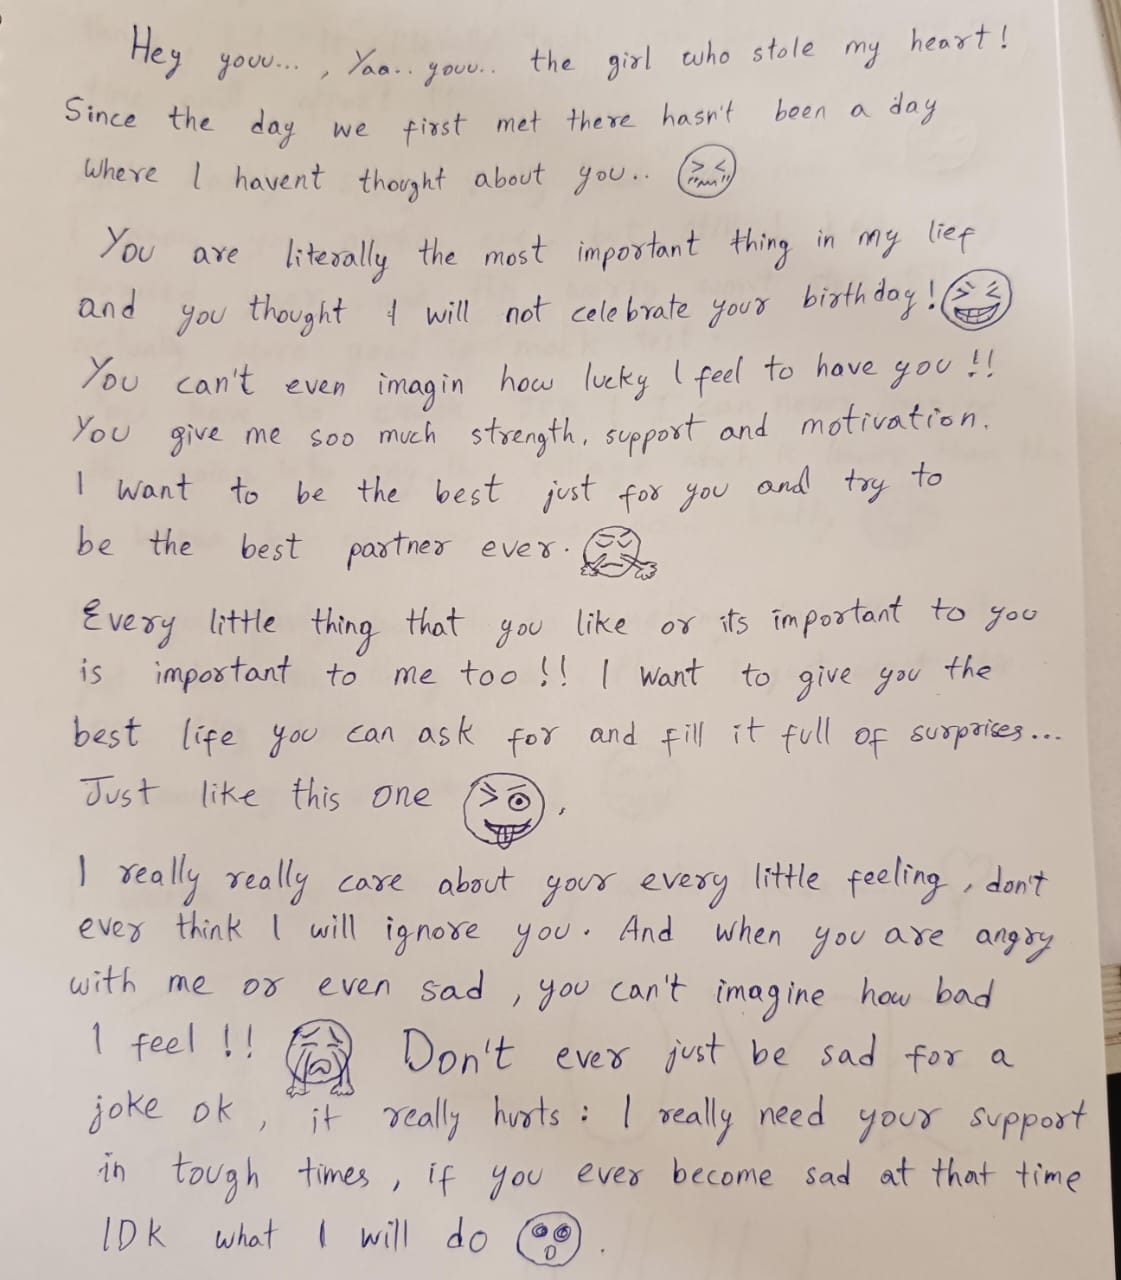 Hey youu... , Yaa.. youu.. the girl who stole my heart!
Since the day we first met there hasn't been a day
Where I havent thought about you..
You are literally the most important thing in my lief
and you thought I will not celebrate your birthday!
You can't even imagin how lucky I feel to have you !!
You give me soo much strength, support and motivation.
I want to be the best just for you and try to
be the best partner ever.
Every little thing that you like or its important to you
is important to me too !! I want to give you the
best life you can ask for and fill it full of surprises...
Just like this one .
I really really care about your every little feeling, don't
ever think I will ignore you. And when you are angry
with me or even sad, you can't imagine how bad
I feel !! Don't ever just be sad for a
joke ok, it really hurts : I really need your support
in tough times, if you ever become sad at that time
IDK what I will do .